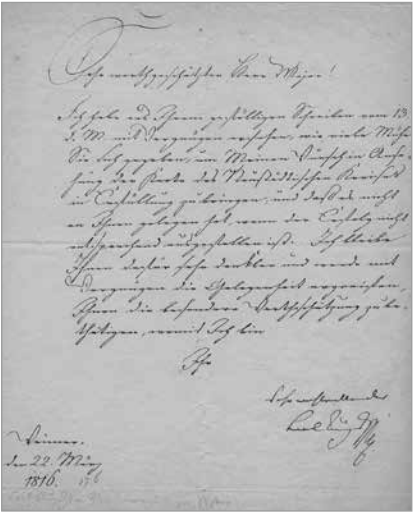 Sehr werthgeschätzter Herr Major!
Ich habe aus Ihrem gefälligen Schreiben vom 13.
d. M. mit Vergnügen ersehen, wie viele Mühe
Sie Sich gegeben, um Meinen Wunsch in Anse-
hung der Karte des Neustädtischen Kreises
in Erfüllung zu bringen, und daß es nicht
an Ihnen gelegen hat, wenn der Erfolg nicht
entsprechend ausgefallen ist. Ich bleibe
Ihnen dafür sehr dankbar und werde mit
Vergnügen die Gelegenheit ergreifen,
Ihnen die besondere Werthschätzung zu be-
thätigen, womit Ich bin
Ihr
Carl Aug
Weimar.
den 22. März
1816.